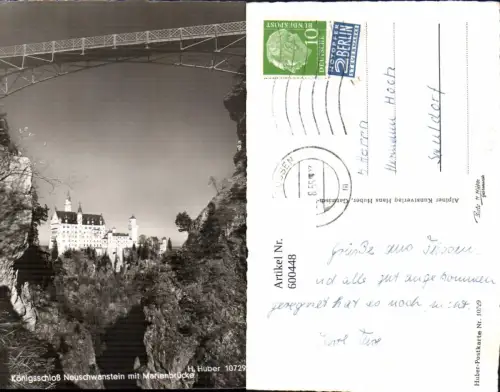 H. Huber 10729
Königsschloß Neuschwanstein mit Marienbrücke
10
DEUTSCHE
BUNDESPOST
NOTOPFER
2 BERLIN
STEUERMARKE
Herrn
Hermann Hoch
Alpiner Kunstverlag Hans Huber, Garmisch
Foto H. Huber
Garmisch
Artikel Nr.
600448
Grüße aus Füssen
und alle gut angekommen
geregnet hat es noch nicht.
Huber-Postkarte Nr. 10729